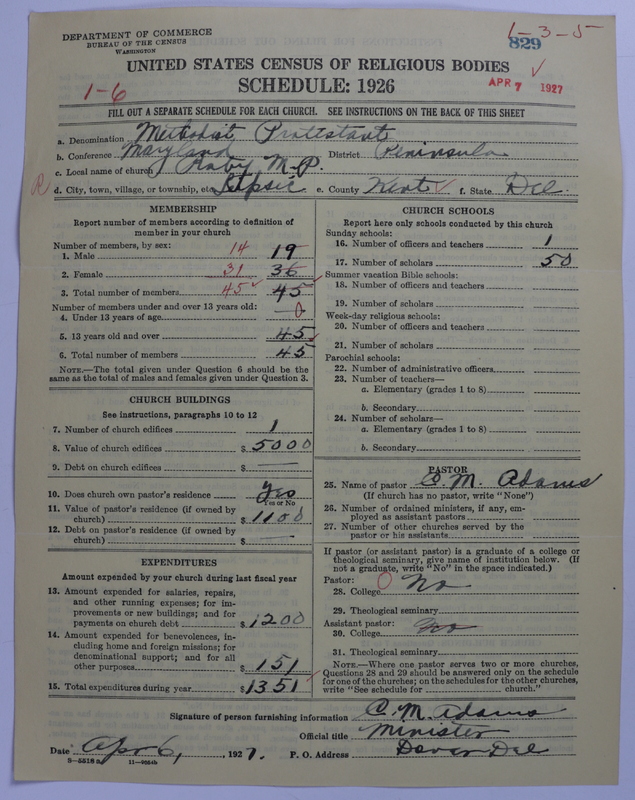 DEPARTMENT OF COMMERCE
BUREAU OF THE CENSUS
WASHINGTON
1-3-5
829
UNITED STATES CENSUS OF RELIGIOUS BODIES
SCHEDULE: 1926
1-6
APR 7 1927
FILL OUT A SEPARATE SCHEDULE FOR EACH CHURCH. SEE INSTRUCTIONS ON THE BACK OF THIS SHEET
a. Denomination Methodist Protestant
b. Conference Maryland District Peninsula
c. Local name of church Raby M.P.
d. City, town, village, or township, etc. Leipsic e. County Kent f. State Del.
MEMBERSHIP
Report number of members according to definition of
member in your church
Number of members, by sex:
1. Male 14 19
2. Female 31 36
3. Total number of members 45 45
Number of members under and over 13 years old:
4. Under 13 years of age 0
5. 13 years old and over 45
6. Total number of members 45
NOTE.—The total given under Question 6 should be
same as the total of males and females given under Question 3.
CHURCH BUILDINGS
See instructions, paragraphs 10 to 12
7. Number of church edifices 1
8. Value of church edifices $ 5000
9. Debt on church edifices $ —
10. Does church own pastor's residence Yes
Yes or No
11. Value of pastor's residence (if owned by
church) $ 1100
12. Debt on pastor's residence (if owned by
church) $ —
EXPENDITURES
Amount expended by your church during last fiscal year
13. Amount expended for salaries, repairs,
and other running expenses; for im-
provements or new buildings; and for
payments on church debt $ 1200
14. Amount expended for benevolences, in-
cluding home and foreign missions; for
denominational support; and for all
other purposes $ 151
15. Total expenditures during year $ 1351
CHURCH SCHOOLS
Report here only schools conducted by this church
Sunday schools:
16. Number of officers and teachers 1
17. Number of scholars 50
Summer vacation Bible schools:
18. Number of officers and teachers
19. Number of scholars
Week-day religious schools:
20. Number of officers and teachers
21. Number of scholars
Parochial schools:
22. Number of administrative officers
23. Number of teachers—
a. Elementary (grades 1 to 8)
b. Secondary
24. Number of scholars—
a. Elementary (grades 1 to 8)
b. Secondary
PASTOR
25. Name of pastor C. M. Adams
(If church has no pastor, write "None")
26. Number of ordained ministers, if any, em-
ployed as assistant pastors
27. Number of other churches served by the
pastor or his assistants
If pastor (or assistant pastor) is a graduate of a college or
theological seminary, give name of institution below. (If
not a graduate, write "No" in the space indicated.)
Pastor:
28. College 0 No
29. Theological seminary
Assistant pastor:
30. College No
31. Theological seminary
NOTE.—Where one pastor serves two or more churches,
Questions 28 and 29 should be answered only on the schedule
for one of the churches; on the schedules for the other churches,
write "See schedule for church."
Signature of person furnishing information C. M. Adams
Official title Minister
Date Apr 6, 1927. P. O. Address Dover Del